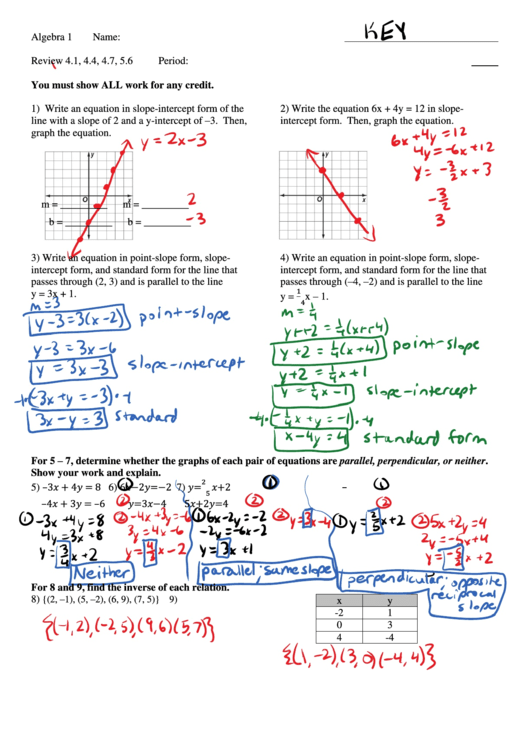 KEY
Algebra 1 Name:
Review 4.1, 4.4, 4.7, 5.6 Period:
You must show ALL work for any credit.
1) Write an equation in slope-intercept form of the
line with a slope of 2 and a y-intercept of –3. Then,
graph the equation.
y = 2x-3
y
O
x
m = m = 2
b = b = -3
2) Write the equation 6x + 4y = 12 in slope-
intercept form. Then, graph the equation.
6x + 4y = 12
4y = -6x + 12
y = -3/2 x + 3
-3/2
3
y
O
x
3) Write an equation in point-slope form, slope-
intercept form, and standard form for the line that
passes through (2, 3) and is parallel to the line
y = 3x + 1.
m = 3
y-3 = 3(x-2) point-slope
y-3 = 3x-6
y = 3x-3 slope-intercept
-1·(-3x + y = -3)·-1
3x - y = 3 standard
4) Write an equation in point-slope form, slope-
intercept form, and standard form for the line that
passes through (–4, –2) and is parallel to the line
y = 1/4 x – 1.
m = 1/4
y++2 = 1/4(x++4)
y+2 = 1/4(x+4) point-slope
y+2 = 1/4x + 1
y = 1/4x - 1 slope-intercept
-4·(-1/4x + y = -1)·-4
x-4y = 4 standard form
For 5 – 7, determine whether the graphs of each pair of equations are parallel, perpendicular, or neither.
Show your work and explain.
5) –3x + 4y = 8 6) 6x–2y=–2 7) y=2/5 x+2
–4x + 3y = –6 y=3x–4 5x+2y=4
① -3x + 4y = 8
4y = 3x + 8
y = 3/4 x + 2
② -4x + 3y = -6
3y = 4x - 6
y = 4/3 x - 2
Neither
① 6x-2y = -2
-2y = -6x-2
y = 3x+1
② y = 3x-4
parallel; same slope
① y = 2/5 x + 2
② 5x + 2y = 4
2y = -5x + 4
y = -5/2 x + 2
perpendicular; opposite
reciprocal
slope
For 8 and 9, find the inverse of each relation.
8) {(2, –1), (5, –2), (6, 9), (7, 5)} 9)
{(-1,2),(-2,5),(9,6)(5,7)}
x y
-2 1
0 3
4 -4
{(1,-2),(3,0)(-4,4)}